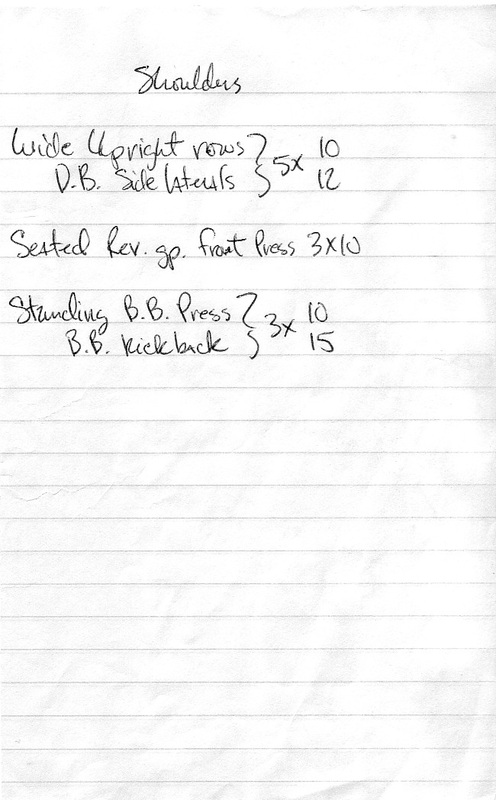 Shoulders
Wide Upright rows } 5x 10
D.B. Side laterals } 12
Seated Rev. gp. front Press 3x10
Standing B.B. Press } 3x 10
B.B. kickback } 15